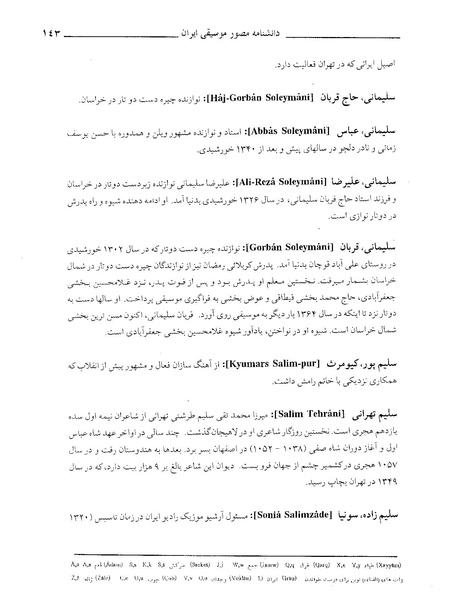 دانشنامه مصور موسیقی ایران ۱۴۳
اصیل ایرانی که در تهران فعالیت دارد.
سلیمانی، حاج قربان [Háj-Gorbán Soleymáni]: نوازنده چیره دست دو تار در خراسان.
سلیمانی، عباس [Abbás Soleymáni]: استاد و نوازنده مشهور ویلن و همدوره با حسن یوسف
زمانی و نادر دلجو در سالهای پیش و بعد از ۱۳۴۰ خورشیدی.
سلیمانی، علیرضا [Ali-Rezá Soleymáni]: علیرضا سلیمانی نوازنده زبردست دوتار در خراسان
و فرزند استاد حاج قربان سلیمانی، در سال ۱۳۲۶ خورشیدی بدنیا آمد. او ادامه دهنده شیوه و راه پدرش
در دوتار نوازی است.
سلیمانی، قربان [Gorbán Soleymáni]: نوازنده چیره دست دوتار که در سال ۱۳۰۲ خورشیدی
در روستای علی آباد قوچان بدنیا آمد. پدرش کربلائی رمضان نیز از نوازندگان چیره دست دوتار در شمال
خراسان بشمار میرفت. نخستین معلم او پدرش بود و پس از فوت پدر، نزد غلامحسین بخشی
جعفرآبادی، حاج محمد بخشی قیطاقی و عوض بخشی به فراگیری موسیقی پرداخت. او سالها دست به
دوتار نزد تا اینکه در سال ۱۳۶۴ بار دیگر به موسیقی روی آورد. قربان سلیمانی، اکنون مسن ترین بخشی
شمال خراسان است. شیوه او در نواختن، یادآور شیوه غلامحسین بخشی جعفرآبادی است.
سلیم پور، کیومرث [Kyumars Salim-pur]: از آهنگ سازان فعال و مشهور پیش از انقلاب که
همکاری نزدیکی با خانم رامش داشت.
سلیم تهرانی [Salim Tehráni]: میرزا محمد تقی سلیم طرشتی تهرانی از شاعران نیمه اول سده
یازدهم هجری است. نخستین روزگار شاعری او در لاهیجان گذشت. چند سالی در اواخر عهد شاه عباس
اول و آغاز دوران شاه صفی (۱۰۳۸ - ۱۰۵۲) در اصفهان بسر برد. بعدها به هندوستان رفت و در سال
۱۰۵۷ هجری در کشمیر چشم از جهان فرو بست. دیوان این شاعر بالغ بر ۹ هزار بیت دارد، که در سال
۱۳۴۹ در تهران بچاپ رسید.
سلیم زاده، سونیا [Soniá Salimzáde]: مسئول آرشیو موزیک رادیو ایران در زمان تاسیس (۱۳۲۰